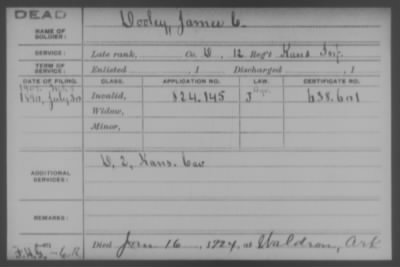 DEAD
NAME OF SOLDIER: Dooley, James C.
SERVICE: Late rank, Co. D, 12 Reg't Kans Inf.
TERM OF SERVICE: Enlisted , 1 Discharged , 1
DATE OF FILING. CLASS. APPLICATION NO. LAW. CERTIFICATE NO.
1890, July 30 Invalid, 824.145 J 638.601
Widow,
Minor,
ADDITIONAL SERVICES: D, 2, Kans. Cav
REMARKS:
Died Jan 16, 1924, at Waldron, Ark